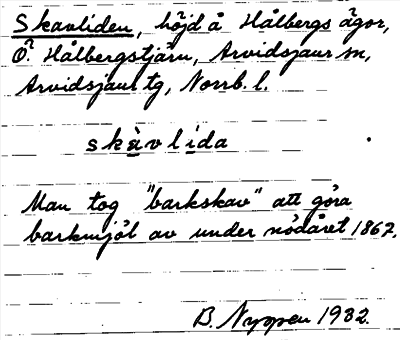 Skavliden, höjd å Hålbergs ägor,
Ö. Hålbergstjärn, Arvidsjaur sn,
Arvidsjaur tg, Norrb. l.
skàvlída
Man tog "barkskav" att göra
barkmjöl av under nödåret 1867.
B. Nyppen 1932.